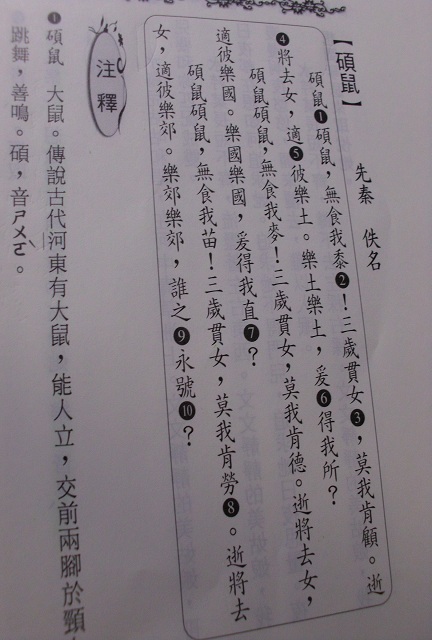 【碩鼠】
先秦 佚名
碩鼠❶碩鼠,無食我黍❷!三歲貫女❸,莫我肯顧。逝
❹將去女,適❺彼樂土。樂土樂土,爰❻得我所?
碩鼠碩鼠,無食我麥!三歲貫女,莫我肯德。逝將去女,
適彼樂國。樂國樂國,爰得我直❼?
碩鼠碩鼠,無食我苗!三歲貫女,莫我肯勞❽。逝將去
女,適彼樂郊。樂郊樂郊,誰之❾永號❿?
注釋
❶碩鼠 大鼠。傳說古代河東有大鼠,能人立,交前兩腳於頸
跳舞,善鳴。碩,音ㄕㄨㄛˋ。